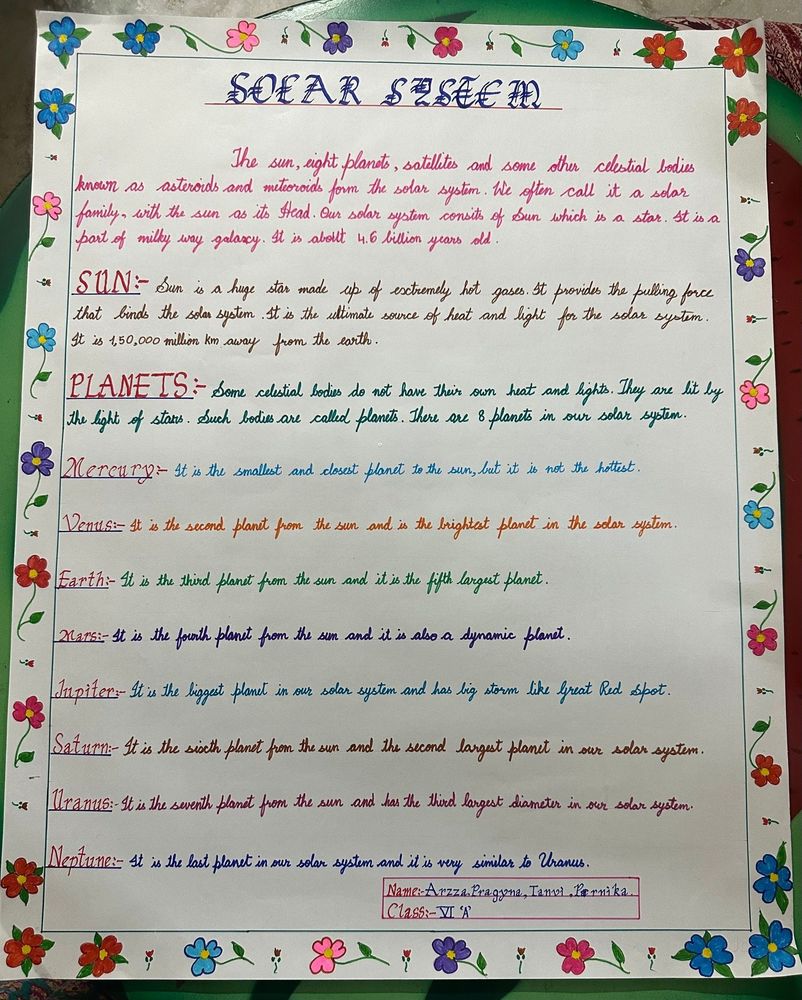 SOLAR SYSTEM
The sun, eight planets, satellites and some other celestial bodies
known as asteroids and meteoroids form the solar system. We often call it a solar
family, with the sun as its Head. Our solar system consits of Sun which is a star. It is a
part of milky way galaxy. It is about 4.6 billion years old.
SUN:- Sun is a huge star made up of exctremely hot gases. It provides the pulling force
that binds the solar system. It is the ultimate source of heat and light for the solar system.
It is 1,50,000 million km away from the earth.
PLANETS:- Some celestial bodies do not have their own heat and lights. They are lit by
the light of stars. Such bodies are called planets. There are 8 planets in our solar system.
Mercury:- It is the smallest and closest planet to the sun, but it is not the hottest.
Venus:- It is the second planet from the sun and is the brightest planet in the solar system.
Earth:- It is the third planet from the sun and it is the fifth largest planet.
Mars:- It is the fourth planet from the sun and it is also a dynamic planet.
Jupiter:- It is the biggest planet in our solar system and has big storm like Great Red Spot.
Saturn:- It is the sixth planet from the sun and the second largest planet in our solar system.
Uranus:- It is the seventh planet from the sun and has the third largest diameter in our solar system.
Neptune:- It is the last planet in our solar system and it is very similar to Uranus.
Name:- Arzza, Pragyna, Tanvi, Pernika.
Class:- VI 'A'